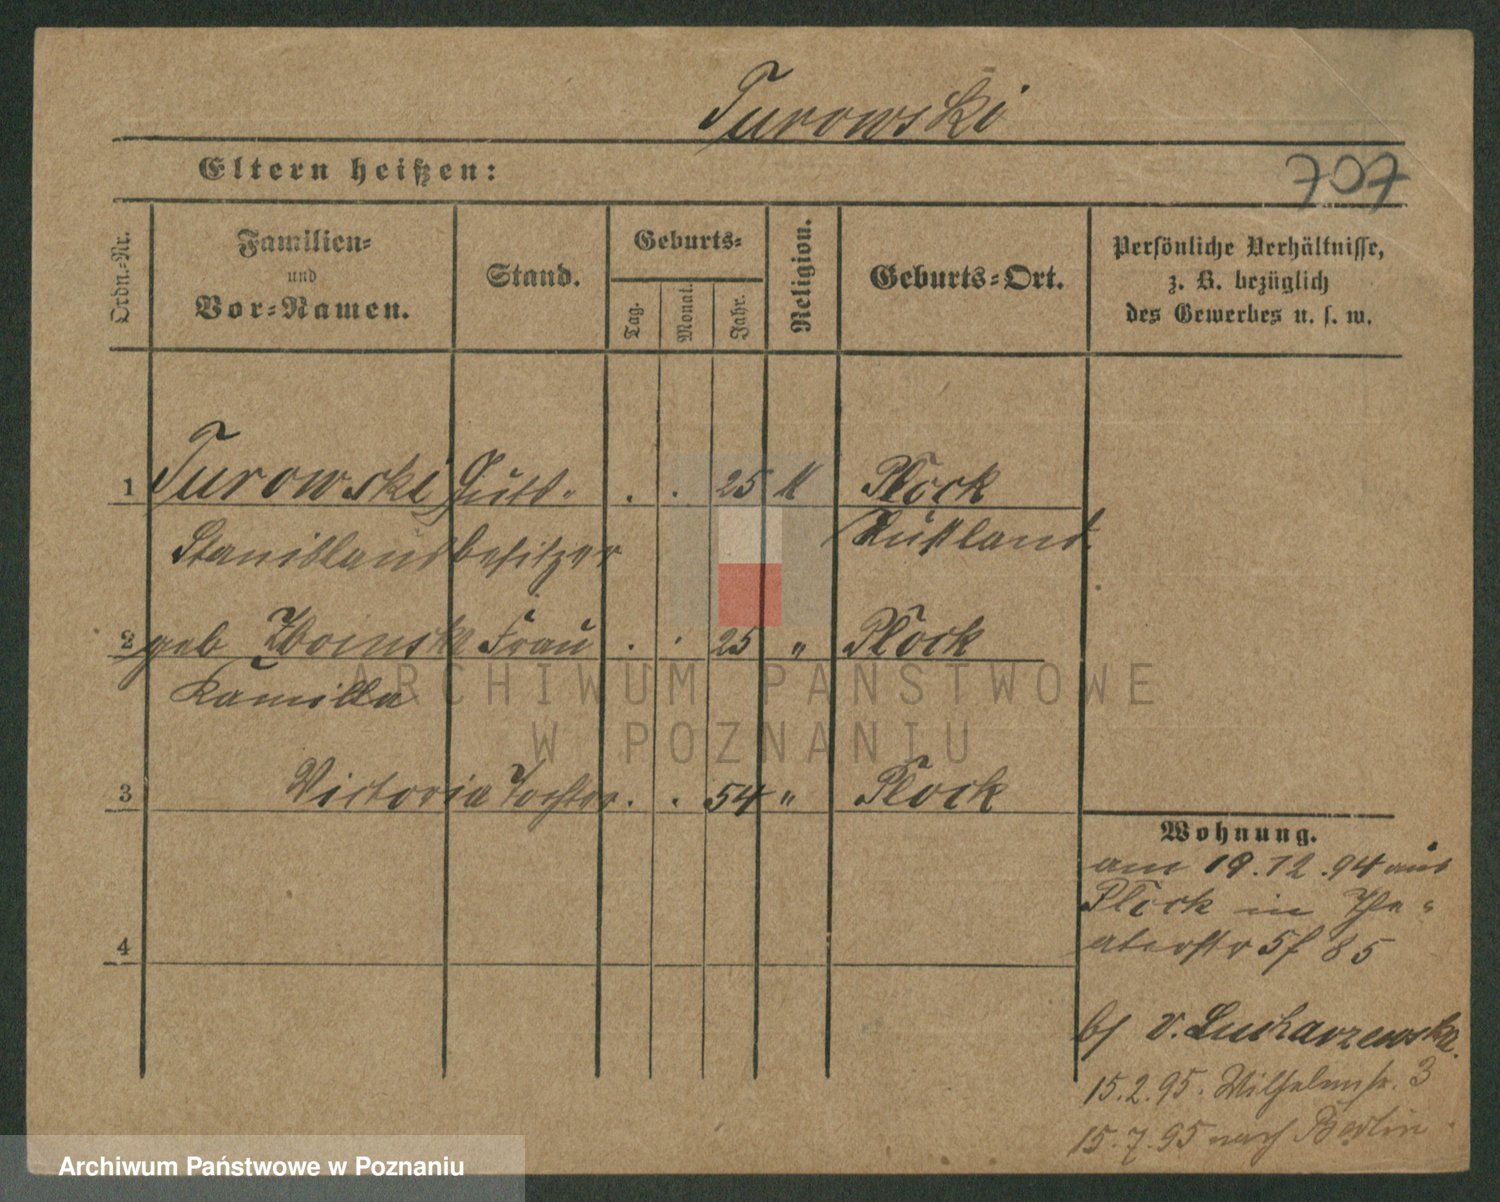 Turowski
Eltern heißen:
707
Ordn.-Nr.
Familien-
und
Vor-Namen.
Stand.
Geburts-
Tag.
Monat.
Jahr.
Religion.
Geburts-Ort.
Persönliche Verhältnisse,
z. B. bezüglich
des Gewerbes u. s. w.
1 Turowski Guts- . . 25 K Plock
Stanislaus besitzer Rußland.
2 geb Frau . . 25 " Plock
Kamilla
3 Victoria Tochter . . 54 " Plock
4
Wohnung.
am 19.12.94 aus
Plock in The-
aterstr 5
b/ v.
15.2.95. Wilhelmstr. 3
15.7.95 nach Berlin.
ARCHIWUM PAŃSTWOWE
W POZNANIU
Archiwum Państwowe w Poznaniu